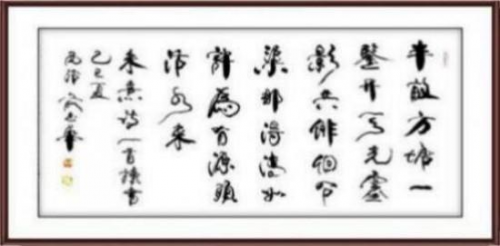 半畝方塘一
鑒开天光雲
影共徘徊问
渠那得清如
許為有源頭
活水来
朱熹诗一首横書
己巳夏